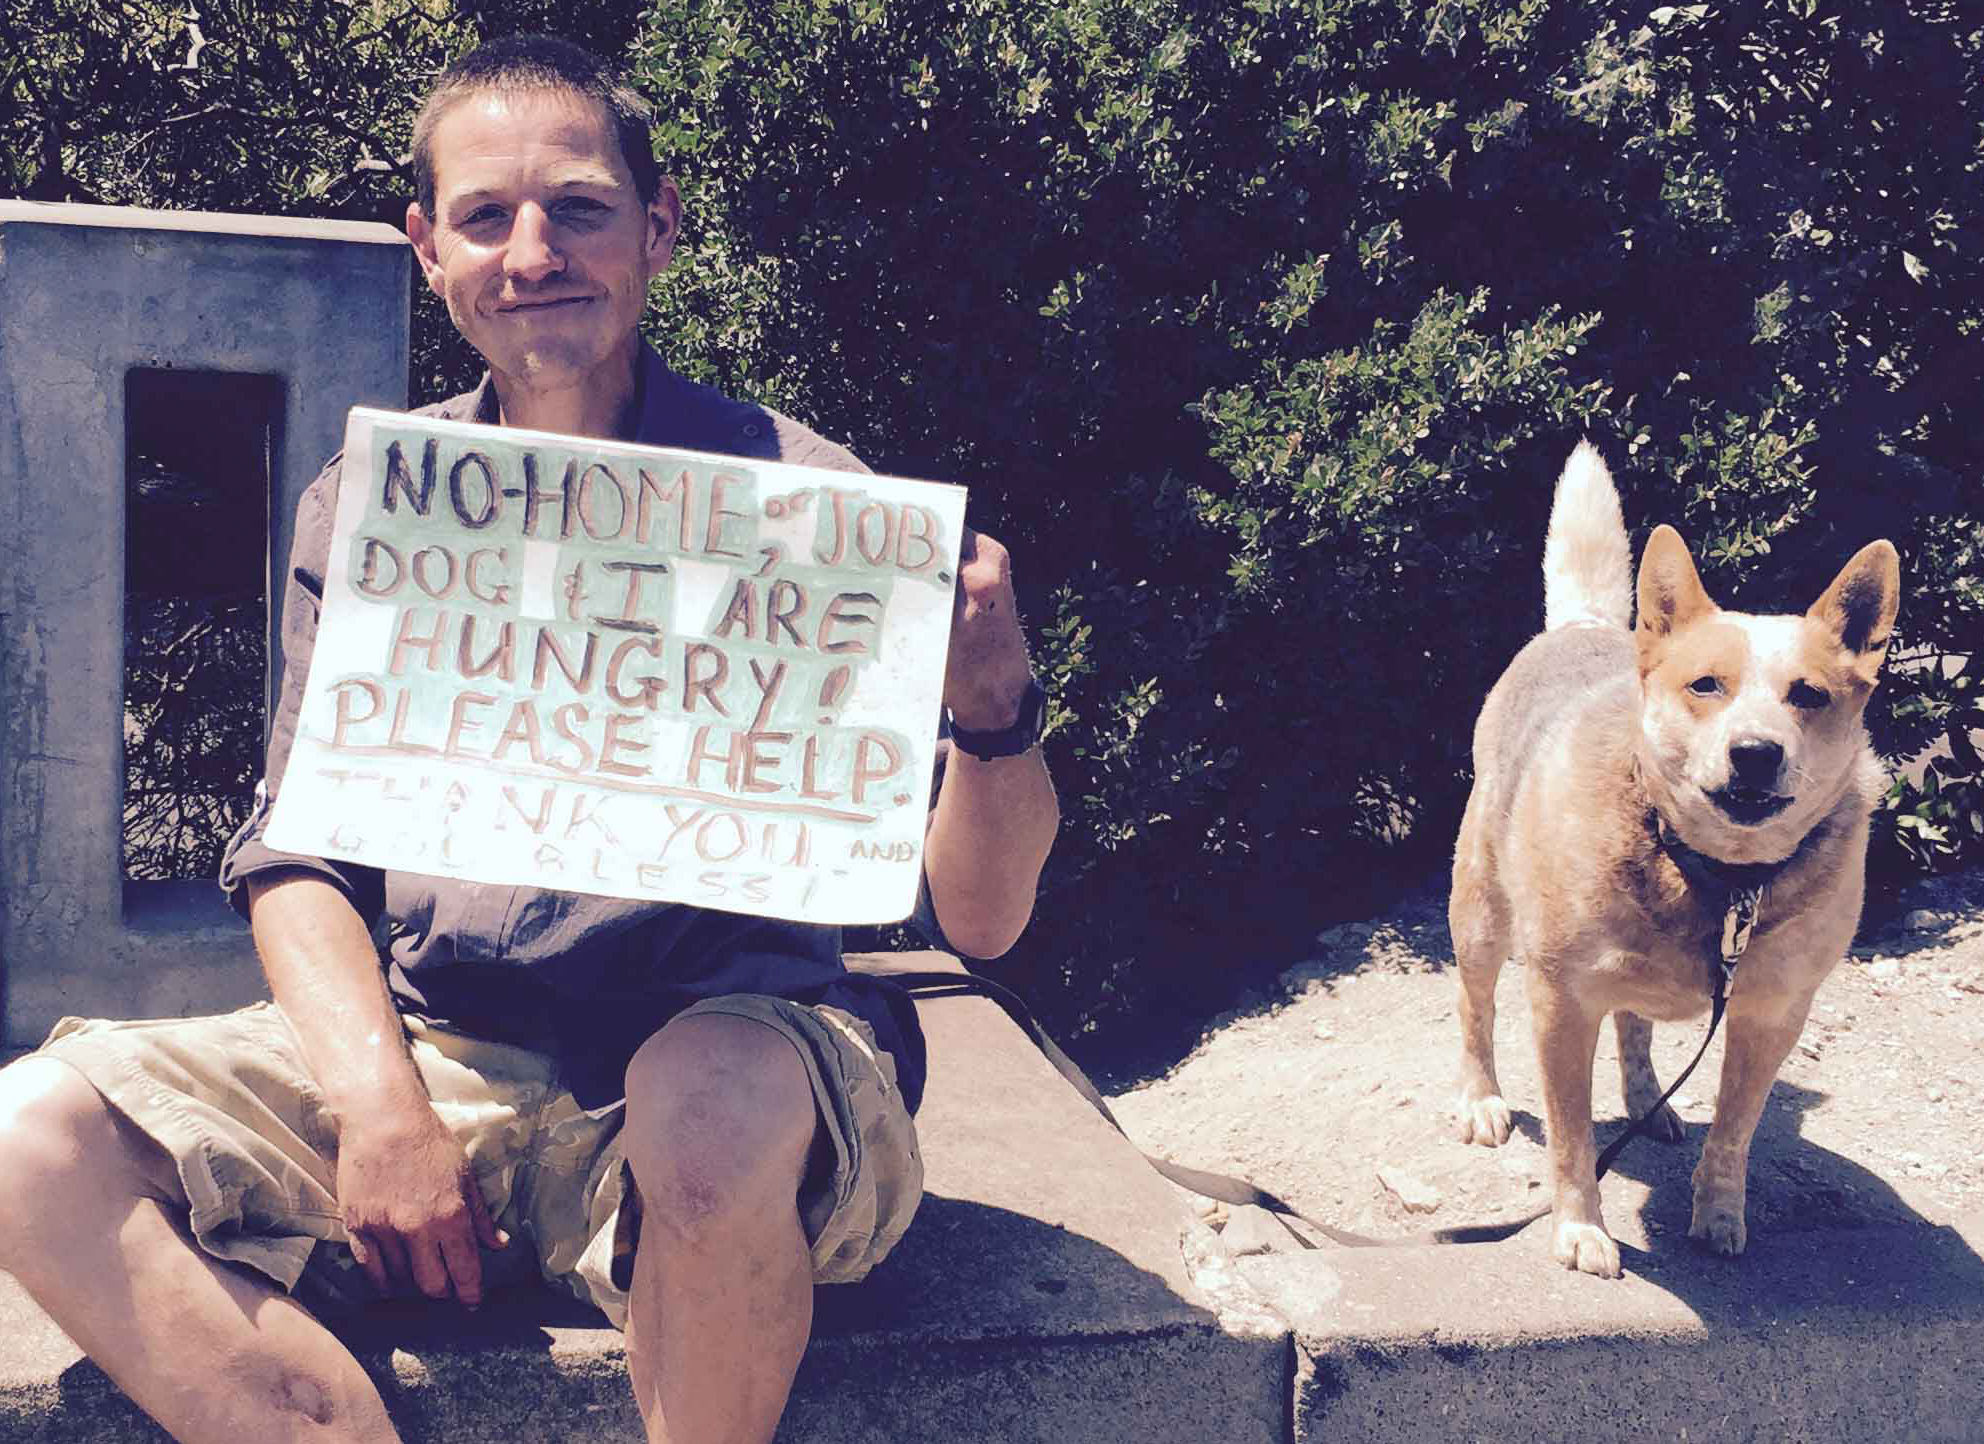 NO-HOME, or JOB.
DOG & I ARE
HUNGRY!
PLEASE HELP.
THANK YOU AND
GOD BLESS!